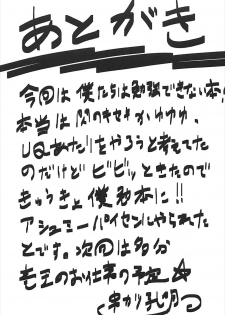 あとがき
今回は僕たちは勉強できない本！
本当は　のキセキかゆゆゆ、
UQあたりをやろうと考えてた
のだけどビビッときたので
きゅうきょ僕勉本に!!
アシュエーパイセンにやられたっ
とです。次回は多分
竜王のおしごと本の予定☆
串かり孔明